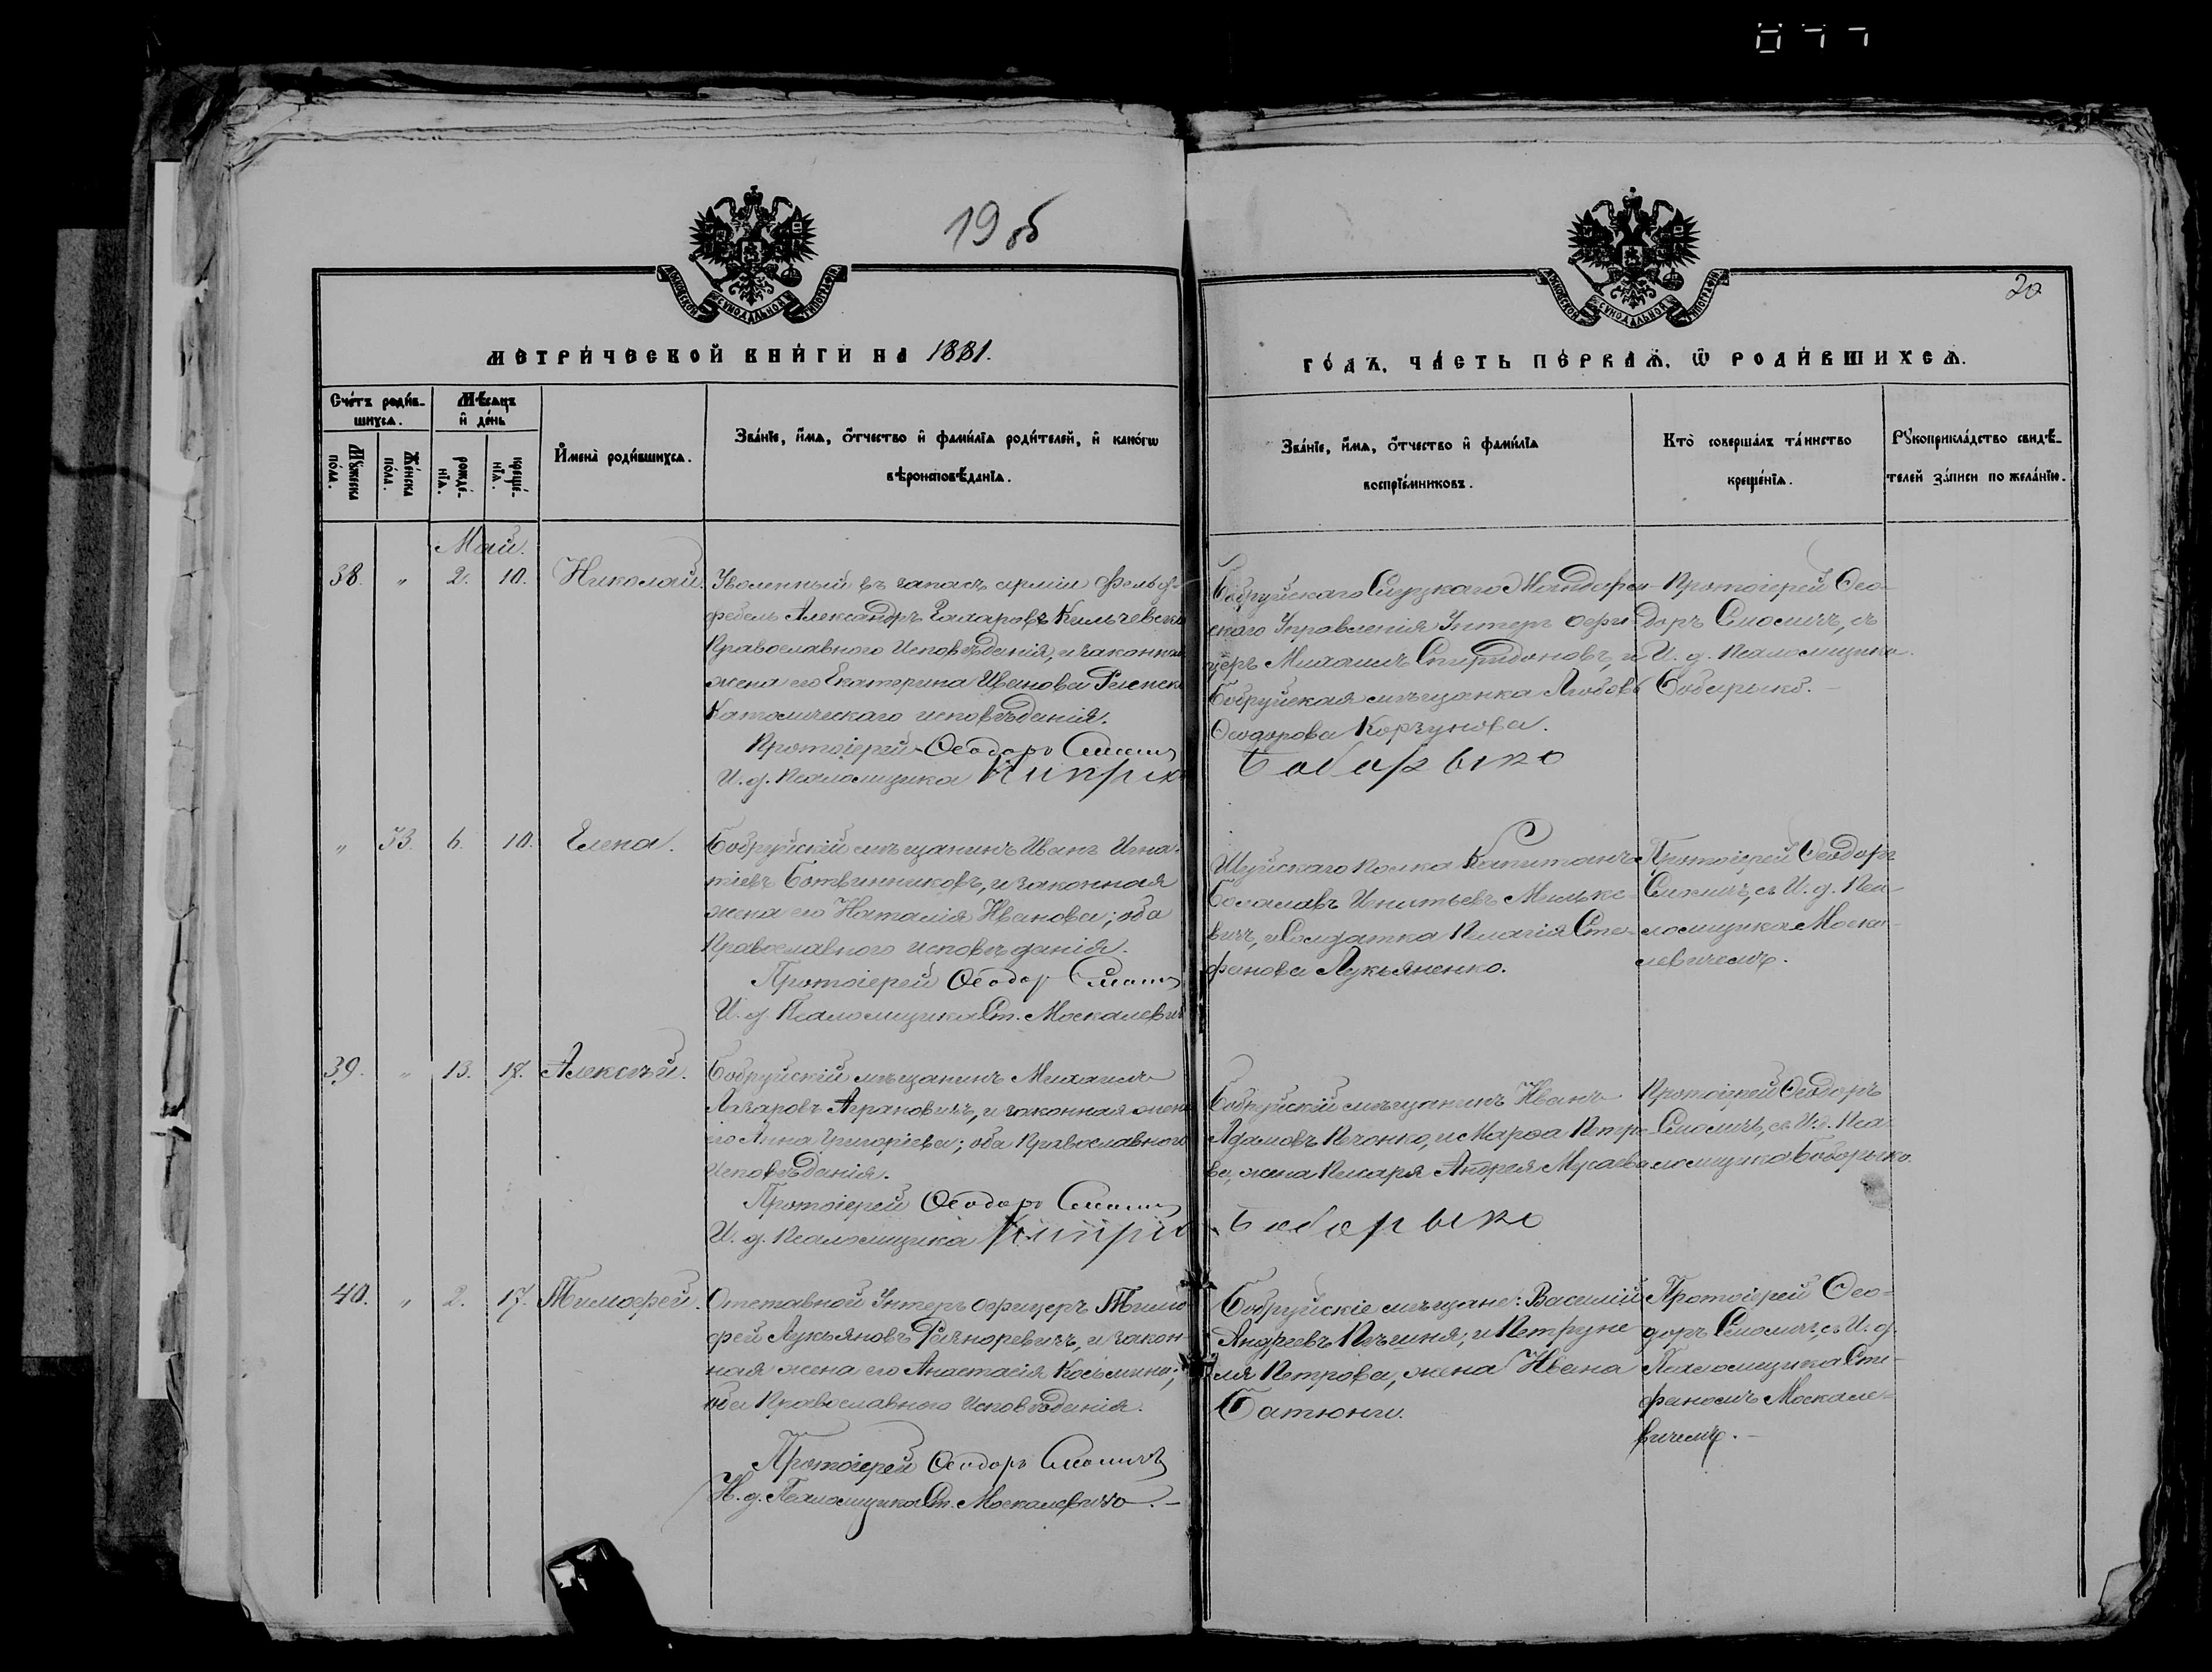 19 об
20
МОСКОВСКОЙ СѴНОДАЛЬНОЙ ТИПОГРАФІИ
МОСКОВСКОЙ СѴНОДАЛЬНОЙ ТИПОГРАФІИ
МЕТРИ́ЧЕСКОЙ КНИ́ГИ НА 1881.
ГО́ДЪ, ЧА́СТЬ ПЕ́РВАѦ, Ѡ РОДИ́ВШИХСѦ.
Сче́тъ роди́в-
шихсѧ.
Мꙋ́жеска по́ла.
Же́нска по́ла.
Мѣ́сѧцъ
и҆ де́нь
рожде́-
нїѧ.
креще́-
нїѧ.
И҆мена̀ роди́вшихсѧ.
Зва́нїе, и҆́мѧ, ѻ҆́тчество и҆ фами́лїѧ роди́телей, и҆ како́гѡ
вѣроисповѣ́данїѧ.
Зва́нїе, и҆́мѧ, ѻ҆́тчество и҆ фами́лїѧ
воспрїе́мниковъ.
Кто̀ соверша́лъ та́инство
креще́нїѧ.
Рꙋкоприкла́дство свидѣ́-
телей за́писи по жела́нїю.
Май.
38. „ 2. 10. Николай.
Уволенный въ запасъ арміи фельд-
фебель Александръ Захаровъ
Православнаго Исповѣданія, и законная
жена его Екатерина Иванова Римско
Католическаго исповѣданія.
Протоіерей Ѳеодоръ Смоличъ
И. д. Псаломщика Кипріа
Бобруйскаго
скаго Управленія Унтеръ офи-
церъ Михаилъ Спиридоновъ, и
Бобруйская мѣщанка Любовь
Ѳеодорова Корзунова.
Боборыко
Протоіерей Ѳео-
доръ Смоличъ, съ
И. д. Псаломщика
Боборыко. –
„ 33. 6. 10. Елена.
Бобруйскій мѣщанинъ Иванъ Игна-
тіевъ Ботвинниковъ, и законная
жена его Наталія Иванова; оба
Православнаго исповѣданія.
Протоіерей Ѳеодоръ Смоличъ
И. д. Псаломщика Ст. Москалевичъ
Шуйскаго полка Капитанъ
Болславъ Игнатьевъ
вичъ, и Солдатка Пелагія Сте-
фанова Лукьяненко.
Протоіерей Ѳеодоръ
Смоличъ, съ И. д. Пса-
ломщика Моска-
левичемъ.
39. „ 13. 17. Алексѣй.
Бобруйскій мѣщанинъ Михаилъ
Лазаровъ Аграновичъ, и законная жена
его Анна Григоріева; оба Православнаго
Исповѣданія.
Протоіерей Ѳеодоръ Смоличъ
И. д. Псаломщика Кипріа
Бобруйскій мѣщанинъ Иванъ
Адамовъ Печонко, и Марѳа Петро-
ва, жена Писаря Андрея Мусаева
Боборыко
Протоіерей Ѳеодоръ
Смоличъ, съ И. д. Пса-
ломщика Боборыко.
40. „ 2. 17. Тимоѳей.
Отставной Унтеръ офицеръ Тимо
фей Лукьяновъ и закон-
ная жена его Анастасія Косьмина;
оба Православнаго Исповѣданія.
Протоіерей Ѳеодоръ Смоличъ
И. д. Псаломщика Ст. Москалевичъ. –
Бобруйскіе мѣщане: Василій
Андреевъ Пѣшня; и Петруне-
ля Петрова, жена Ивана
Батюни.
Протоіерей Ѳео-
доръ Смоличъ, съ И. д.
Псаломщика Сте-
фаномъ Москале-
вичемъ. –